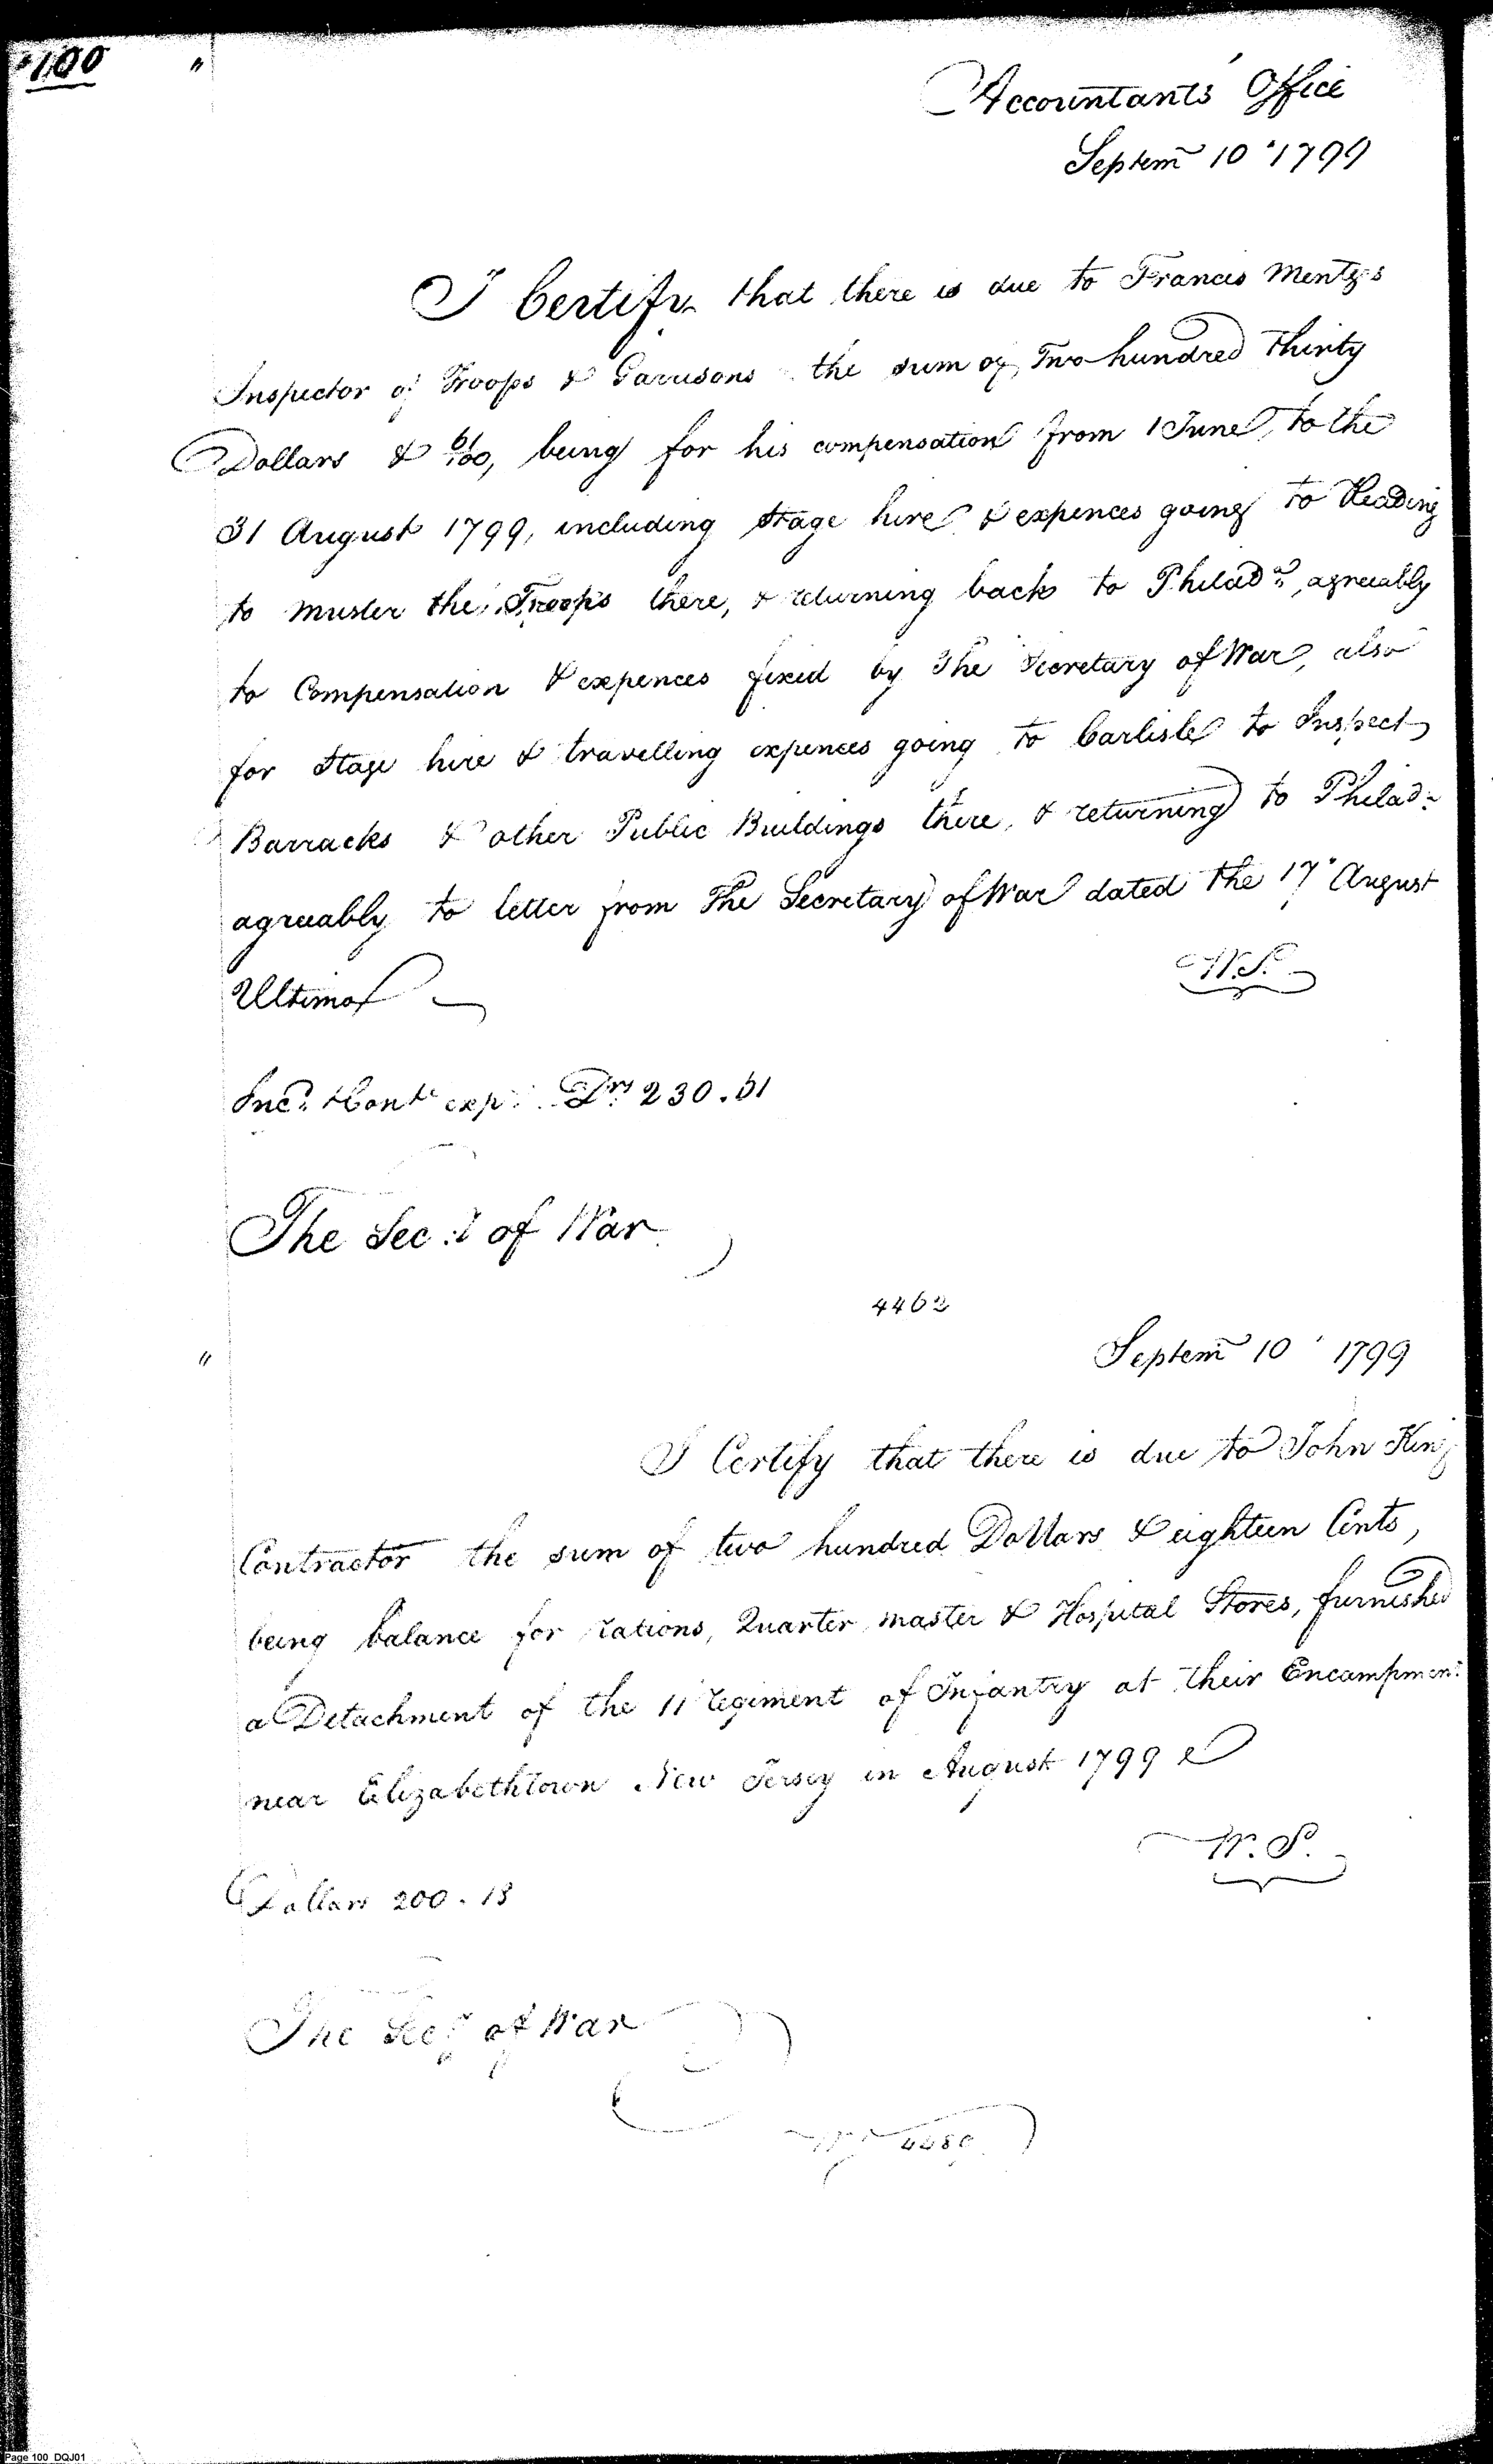 100 "
Accountants Office
Septem 10 1799
I Certify that there is due to Francis Mentges
Inspector of Troops & Garrisons the sum of Two hundred Thirty
Dollars & 61/100, being for his compensation from 1 June, to the
31 August 1799, including stage hire & expences going to Reading
to muster the Troops there, & returning back to Philada, agreeably
to Compensation & expences fixed by The Secretary of War, also
for stage hire & travelling expences going to Carlisle to Inspect
Barracks & other Public Buildings there, & returning to Philada
agreeably to letter from The Secretary of War dated the 17 August
Ultimo
W.S.
Drs 230.61
The Secy of War
4462
" Septem 10 1799
I Certify that there is due to John King
Contractor the sum of two hundred Dollars & eighteen Cents,
being balance for rations, Quarter master & Hospital Stores, furnished
a Detachment of the 11 regiment of Infantry at their Encampment
near Elizabethtown New Jersey in August 1799
W.S.
Dollars 200.18
The Secy of War
Page 100 DQJ01